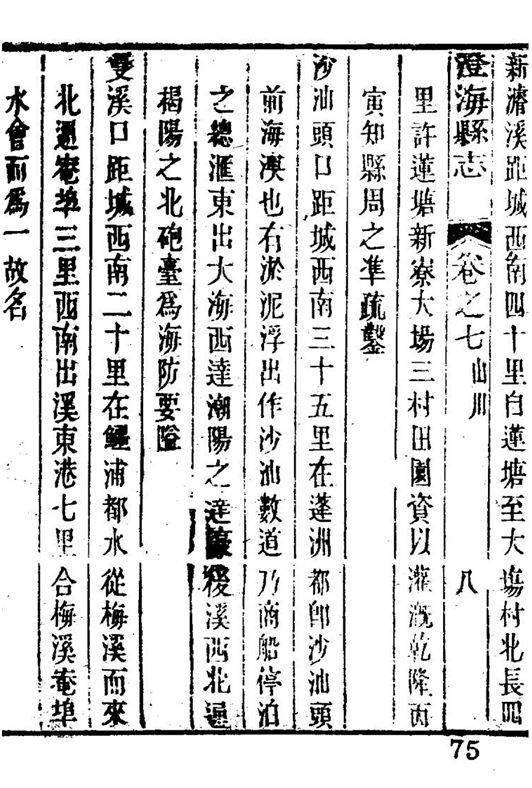 新濬溪距城西南四十里自蓮塘至大塲村北長四
澄海縣志 卷之七 山川 八
里許蓮塘新寮大場三村田園資以灌溉乾隆丙
寅知縣周之準疏鑿
沙汕頭口距城西南三十五里在蓬洲都卽沙汕頭
前海澳也右淤泥浮出作沙汕數道乃商船停泊
之總滙東出大海西達潮陽之達濠後溪西北通
揭陽之北砲臺爲海防要隘
雙溪口距城西南二十里在鱷浦都水從梅溪而來
北通菴埠三里西南出溪東港七里合梅溪菴埠
水會而爲一故名
75